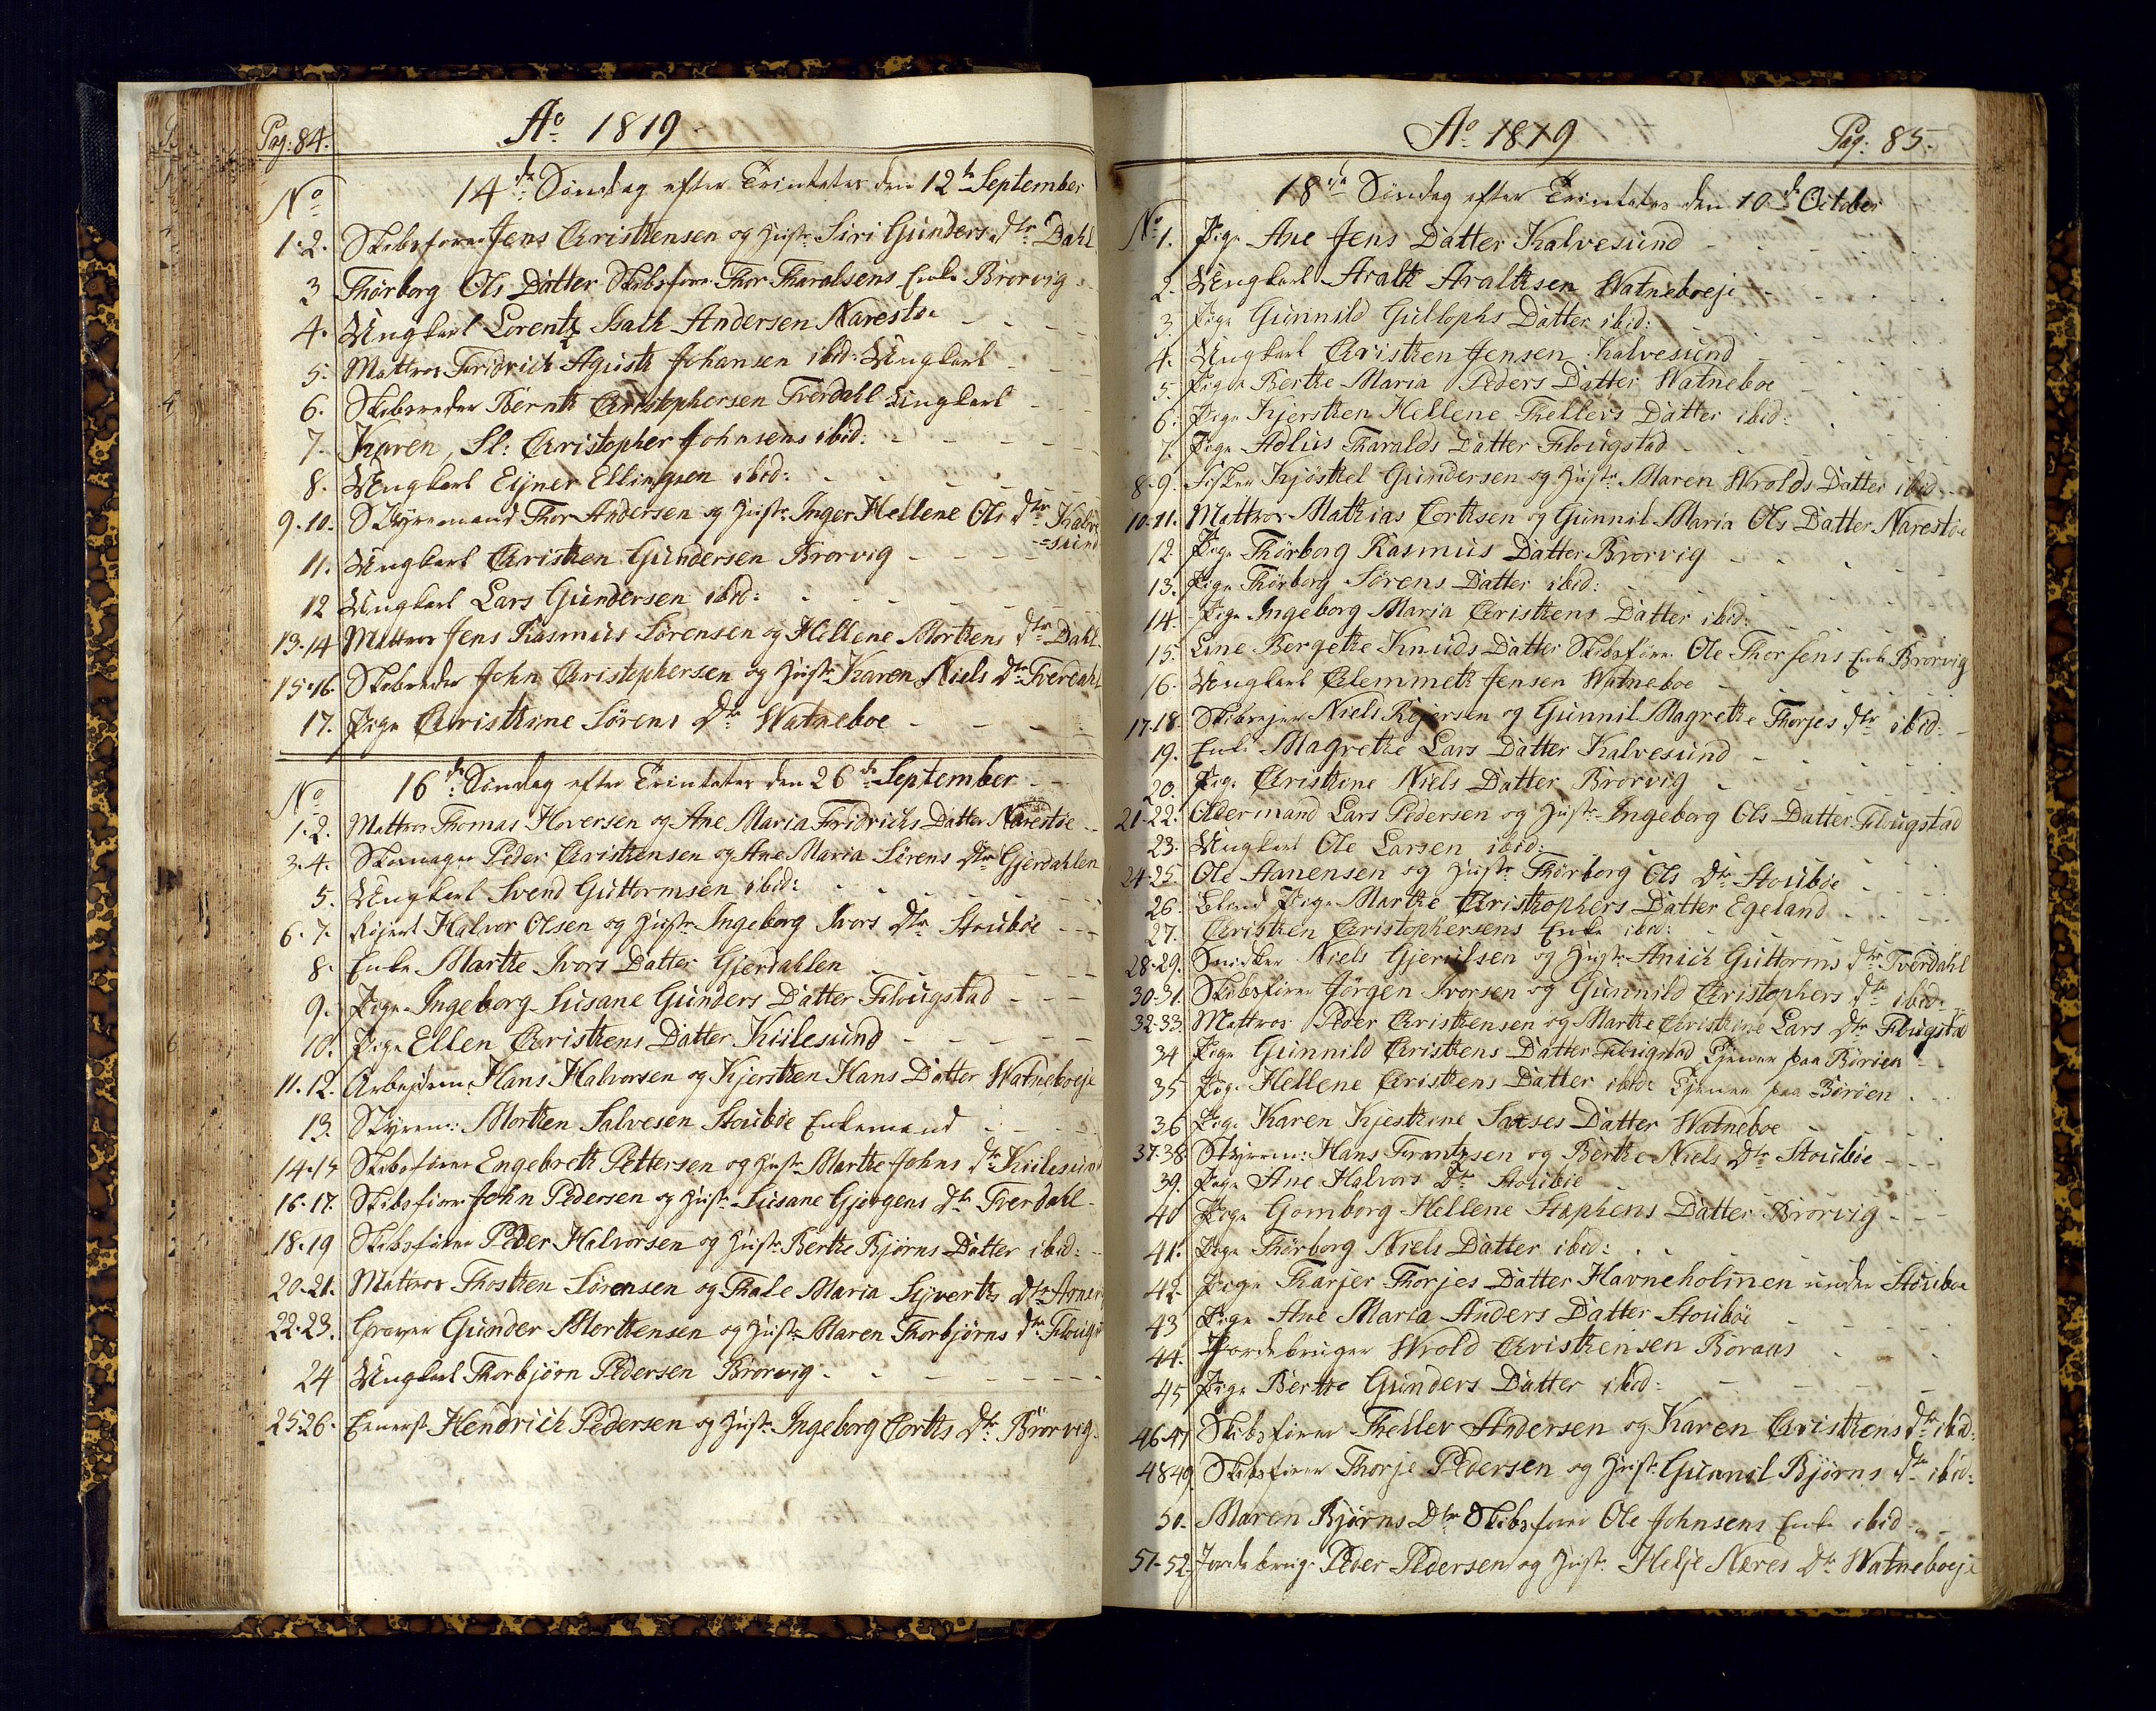 Pag: 84.
Ao 1819
No 14de Søndag efter Trinitatis den 12te September
1-2. Skibsfører Jens Christhensen og Hustr: Siri Gunders Dtr Dahl
3 Thørborg Ols Datter Skibsfører Thor Tharalsens Enke Brorvig
4. Ungkarl Lorentz Isath Andersen Narestøe
5. Mattros Fridrich Agusth Johansen ibid: Ungkarl
6. Skibsreder Bernth Christophersen Tverdahl Ungkarl
7. Karen, Sl: Christopher Johnsens ibid:
8. Ungkarl Eijner Ellingsen ibid:
9.-10. Styremand Thor Andersen og Hustr: Inger Hellene Ols Dtr Kalve
=sund
11. Ungkarl Christhen Gundersen Brorvig
12 Ungkarl Lars Gundersen ibid:
13-14 Mattros Jens Rasmus Sørensen og Hellene Morthens Dtr Dahl
15-16. Skibsreder John Christophersen og Hustr: Karen Niels Dtr Tverdahl
17. Pige Christhine Sørens Dtr Watneboe
No 16de Søndag efter Trinitatis den 26de September
1-2. Mattros Thomas Hoversen og Ane Maria Fridrichs Datter Narestøe
3-4. Skomager Peder Christhensen og Ane Maria Sørens Dtr Gjerdahlen
5. Ungkarl Svend Guttormsen ibid:
6-7. Halvor Olsen og Hustr: Ingeborg Ivors Dtr Stoubøe
8. Enke Marthe Ivors Datter Gjerdahlen
9. Pige Ingeborg Susane Gunders Datter Flougstad
10. Pige Ellen Christhens Datter Kiilesund
11.-12. Arbejdsm: Hans Halvorsen og Kjersthen Hans Datter Watneboeje
13. Styrem: Morthen Salvesen Stoubøe Enkemand
14-15 Skibsfører Engebreth Pettersen og Hustr: Marthe Johns Dtr Kiilesund
16-17. Skibsfører John Pedersen og Hustr: Susane Gjorgens Dtr Tverdahl
18-19 Skibsfører Peder Halvorsen og Hustr: Berthe Bjørns Datter ibid:
20-21. Matros Thosthen Sørensen og Thale Maria Syverths Dtr
22-23. Graver Gunder Morthensen og Hustr: Maren Thorbjørns Dtr
24 Ungkarl Thorbjørn Pedersen Brorvig
25-26. Hendrich Pedersen og Hustr: Ingeborg Corths Dtr Brorvig
Ao 1819
Pag: 85.
18de Søndag efter Trinitatis den 10de October
No 1. Pige Ane Jens Datter Kalvesund
2. Ungkarl Aralth Aralthsen Watneboeje
3. Pige Gunnild Gullophs Datter ibid:
4. Ungkarl Christhen Jensen Kalvesund
5. Pige Berthe Maria Peders Datter Watneboe
6. Pige Kjersthen Hellene Thellevs Datter ibid:
7. Pige Adlus Tharalds Datter Flougstad
8-9. Fisker Kjøsthel Gundersen og Hustr: Maren Wrolds Datter ibid
10-11. Mattros Mathias Corthsen og Gunnil Maria Ols Datter Narestøe
12. Pige Thørborg Rasmus Datter Brorvig
13. Pige Thørborg Sørens Datter ibid:
14. Pige Ingeborg Maria Christhens Datter ibid:
15. Line Bergethe Knuds Datter Skibsfører Ole Thorsens Enke Brorvig
16. Ungkarl Clemmeth Jensen Watneboe
17-18. Skibsejer Niels Rejersen og Gunnil Magrethe Thorjes Dtr ibid:
19. Enke Magrethe Lars Datter Kalvesund
20. Pige Christhine Niels Datter Brorvig
21-22. Oldermand Lars Pedersen og Hustr: Ingeborg Ols Datter Flougstad
23. Ungkarl Ole Larsen ibid:
24-25 Ole Aanensen og Hustr: Thørborg Ols Dtr Stoubøe
26. Blind Pige Marthe Christhophers Datter Egeland
27. Christhen Christophersens Enke ibid:
28-29. Snidker Niels Gjerulsen og Hustr: Anich Guttorms Dtr Tverdahl
30-31. Skibsfører Jørgen Ivorsen og Gunnild Christophers Dtr ibid:
32-33. Mattros Peder Christhensen og Marthe Christhine Lars Dtr Flougstad
34 Pige Gunnild Christhens Datter Flougstad Tjener paa Borøen
35 Pige Hellene Christhens Datter ibid: Tjener paa Borøen
36 Pige Karen Kjesthine Datter Watneboe
37-38 Styrem: Hans Frantzsen og Berthe Niels Dtr Stoubøe
39. Pige Ane Halvors Dtr Stoubøe
40 Pige Gomborg Hellene Stephens Datter Brorvig
41. Pige Thørborg Niels Datter ibid:
42. Pige Tharjer Thorjes Datter Havneholmen under Stoubøe
43 Pige Ane Maria Anders Datter Stoubøe
44. Jordebruger Wrold Christhensen Boraas
45 Pige Berthe Gunders Datter ibid:
46-47 Skibsfører Thellev Andersen og Karen Christhens Dtr ibid:
48-49. Skibsfører Thorje Pedersen og Hustr: Gunnil Bjørns Dtr ibid:
50. Maren Bjørns Dtr Skibsfører Ole Johnsens Enke ibid
51-52. Jordebrug: Peder Pedersen og Hustr: Helje Næres Dtr Watneboeje